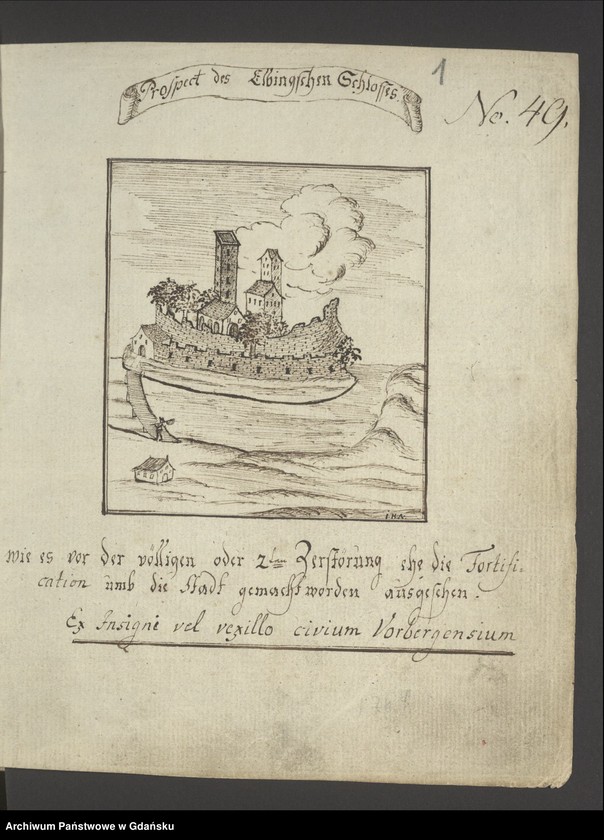 1
Prospect des Elbingschen Schlosses.
No. 49.
I.H.A.
wie es vor der völligen oder 2ten Zerstörung ehe die Fortifi-
cation umb die Stadt gemacht worden ausgesehen.
Ex Insigni vel vexillo civium Vorbergensium
Archiwum Państwowe w Gdańsku